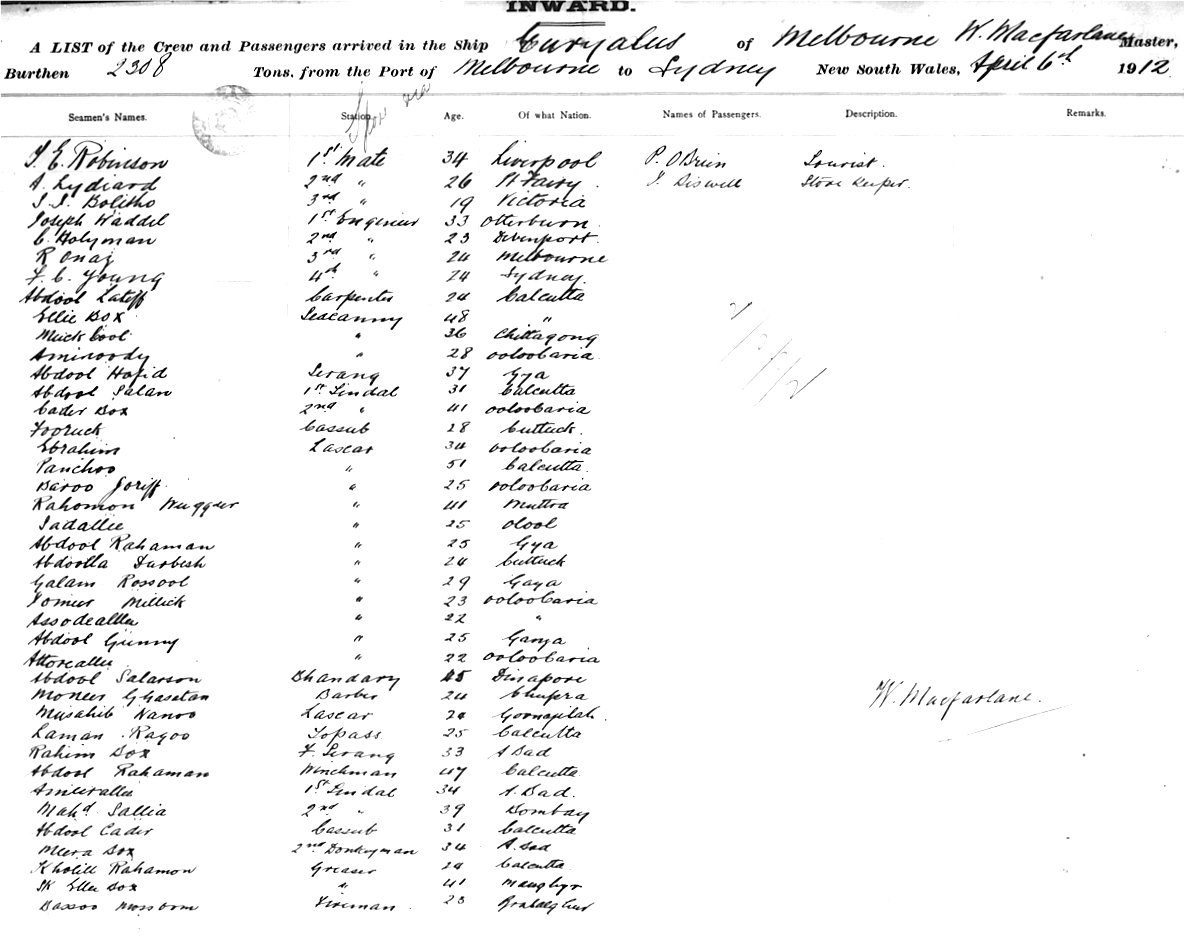 INWARD.
A LIST of the Crew and Passengers arrived in the Ship Euryalus of Melbourne W. Macfarlane Master,
Burthen 2308 Tons, from the Port of Melbourne to Sydney New South Wales, April 6th 1912
Seamen's Names. Station. Age. Of what Nation. Names of Passengers. Description. Remarks.
T. E. Robinson 1st Mate 34 Liverpool P. O'Brien Tourist.
A. Lydiard 2nd " 26 Pt Fairy. T. Diswell Store Keeper.
J. J. Bolitho 3rd " 19 Victoria
Joseph Waddel 1st Engenier 33 Otterburn
C. Holyman 2nd " 23 Devenport
R Onaj 3rd " 24 Melbourne
F. C. Young 4th " 24 Sydney.
Abdool Lateff Carpenter 24 Calcutta
Ellie Box Seacunny 48 "
Muckbool " 36 Chittagong
Aminoody " 28 Ooloobaria
Abdool Hafid Serang 37 Gya
Abdool Salan 1st Tindal 31 Calcutta
Cader Box 2nd " 41 Ooloobaria
Fooruck Cassub 28 Cuttuck
Ebrahim Lascar 34 Ooloobaria
Panchoo " 51 Calcutta
Baroo Joriff " 25 Ooloobaria
Rahomon Nuggur " 41 Muttra
Sadallie " 25 Olool
Abdool Rahaman " 25 Gya
Abdoolla Durbesh " 24 Cuttuck
Galam Rossool " 29 Gaya
Jomeer Millick " 23 Ooloobaria
Assodeallie " 22 "
Abdool Gunny " 25 Ganya
Attoreallie " 22 Ooloobaria
Abdool Salarson Bhandary 45 Dinapore
Moneer Ghasetan Barber 24 Chupra
Musahib Nanoo Lascar 24 W. Macfarlane.
Laman Ragoo Topass 25 Calcutta
Rahim Box F. Serang 33 A Bad
Abdool Rahaman Winchman 47 Calcutta
Amierallie 1st Tindal 34 A. Bad.
Mahd Sallia 2nd " 39 Bombay
Abdool Cader Cassub 31 Calcutta
Meera Box 2nd Donkeyman 34 A. Bad
Kholill Rahamon Greaser 24 Calcutta
Sk Ellee Box " 41 Monghyr
Bassoo Mossoom Fireman 23